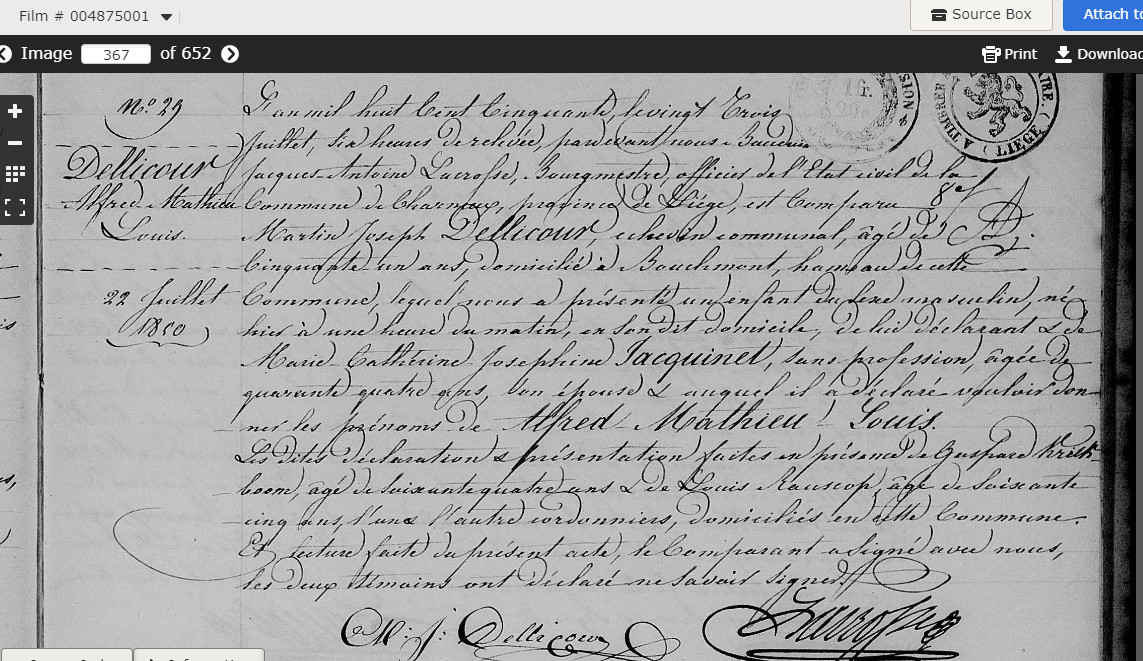 Film # 004875001
Source Box
Attach to
Image 367 of 652
Print
Download
N.º 29
Dellicour
Alfred Mathieu
Louis.
22 Juillet
1850
L'an mil huit Cent Cinquante, le vingt Trois
Juillet, six heures de relevée, pardevant nous
Jacques Antoine Lacrosse, Bourgmestre, officier de l'Etat civil de la
Commune de Charneux, province de Liége, est Comparu
Martin Joseph Dellicour, echevin communal, âgé de
Cinquante un ans, domicilié à Bouxhmont, hameau de cette
Commune, lequel nous a présenté un enfant du sexe masculin, né
hier à une heure du matin, en son dit domicile, de lui déclarant & de
Marie Catherine Josephine Jacquinet, sans profession, âgée de
quarante quatre ans, son épouse & auquel il a déclaré vouloir don-
ner les prénoms de Alfred Mathieu Louis.
Les dites déclaration & présentation faites en présence de Gaspard
boom, âgé de soixante quatre ans & de Louis Rauscop, âgé de soixante
cinq ans, l'un & l'autre cordonniers, domiciliés en cette Commune.
Et lecture faite du présent acte, le Comparant a signé avec nous,
les deux témoins ont déclaré ne savoir signer.
M: J: Dellicour
Lacrosse
LIEGE